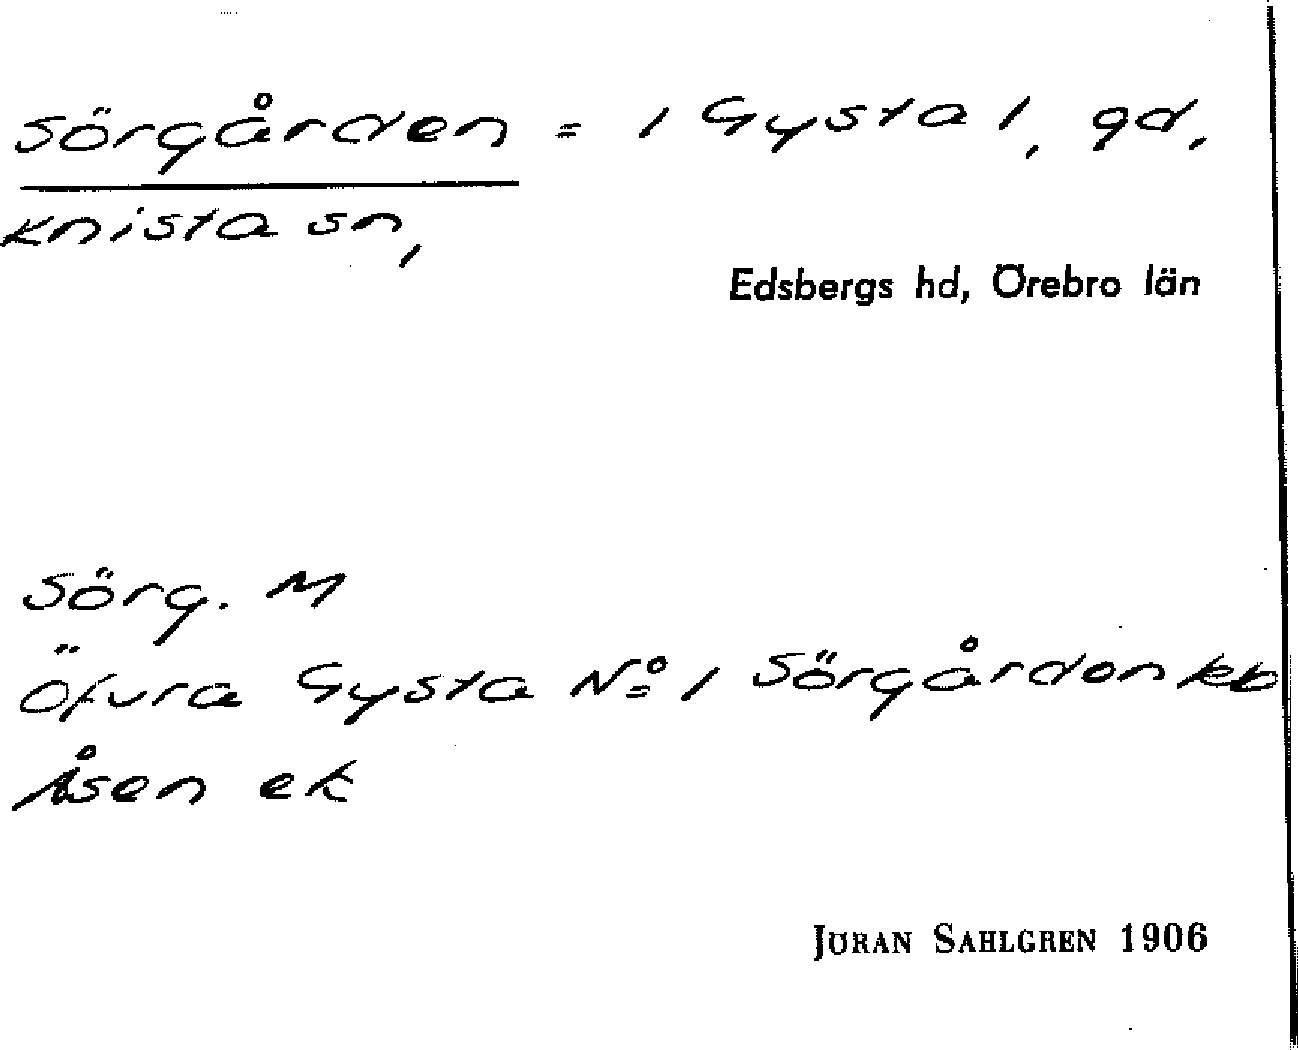 Sörgården = 1 Gysta 1, gd,
Knista sn,
Edsbergs hd, Örebro län
Sörg. M
Öfvra Gysta No 1 Sörgården kb
Åsen ek
JÖRAN SAHLGREN 1906